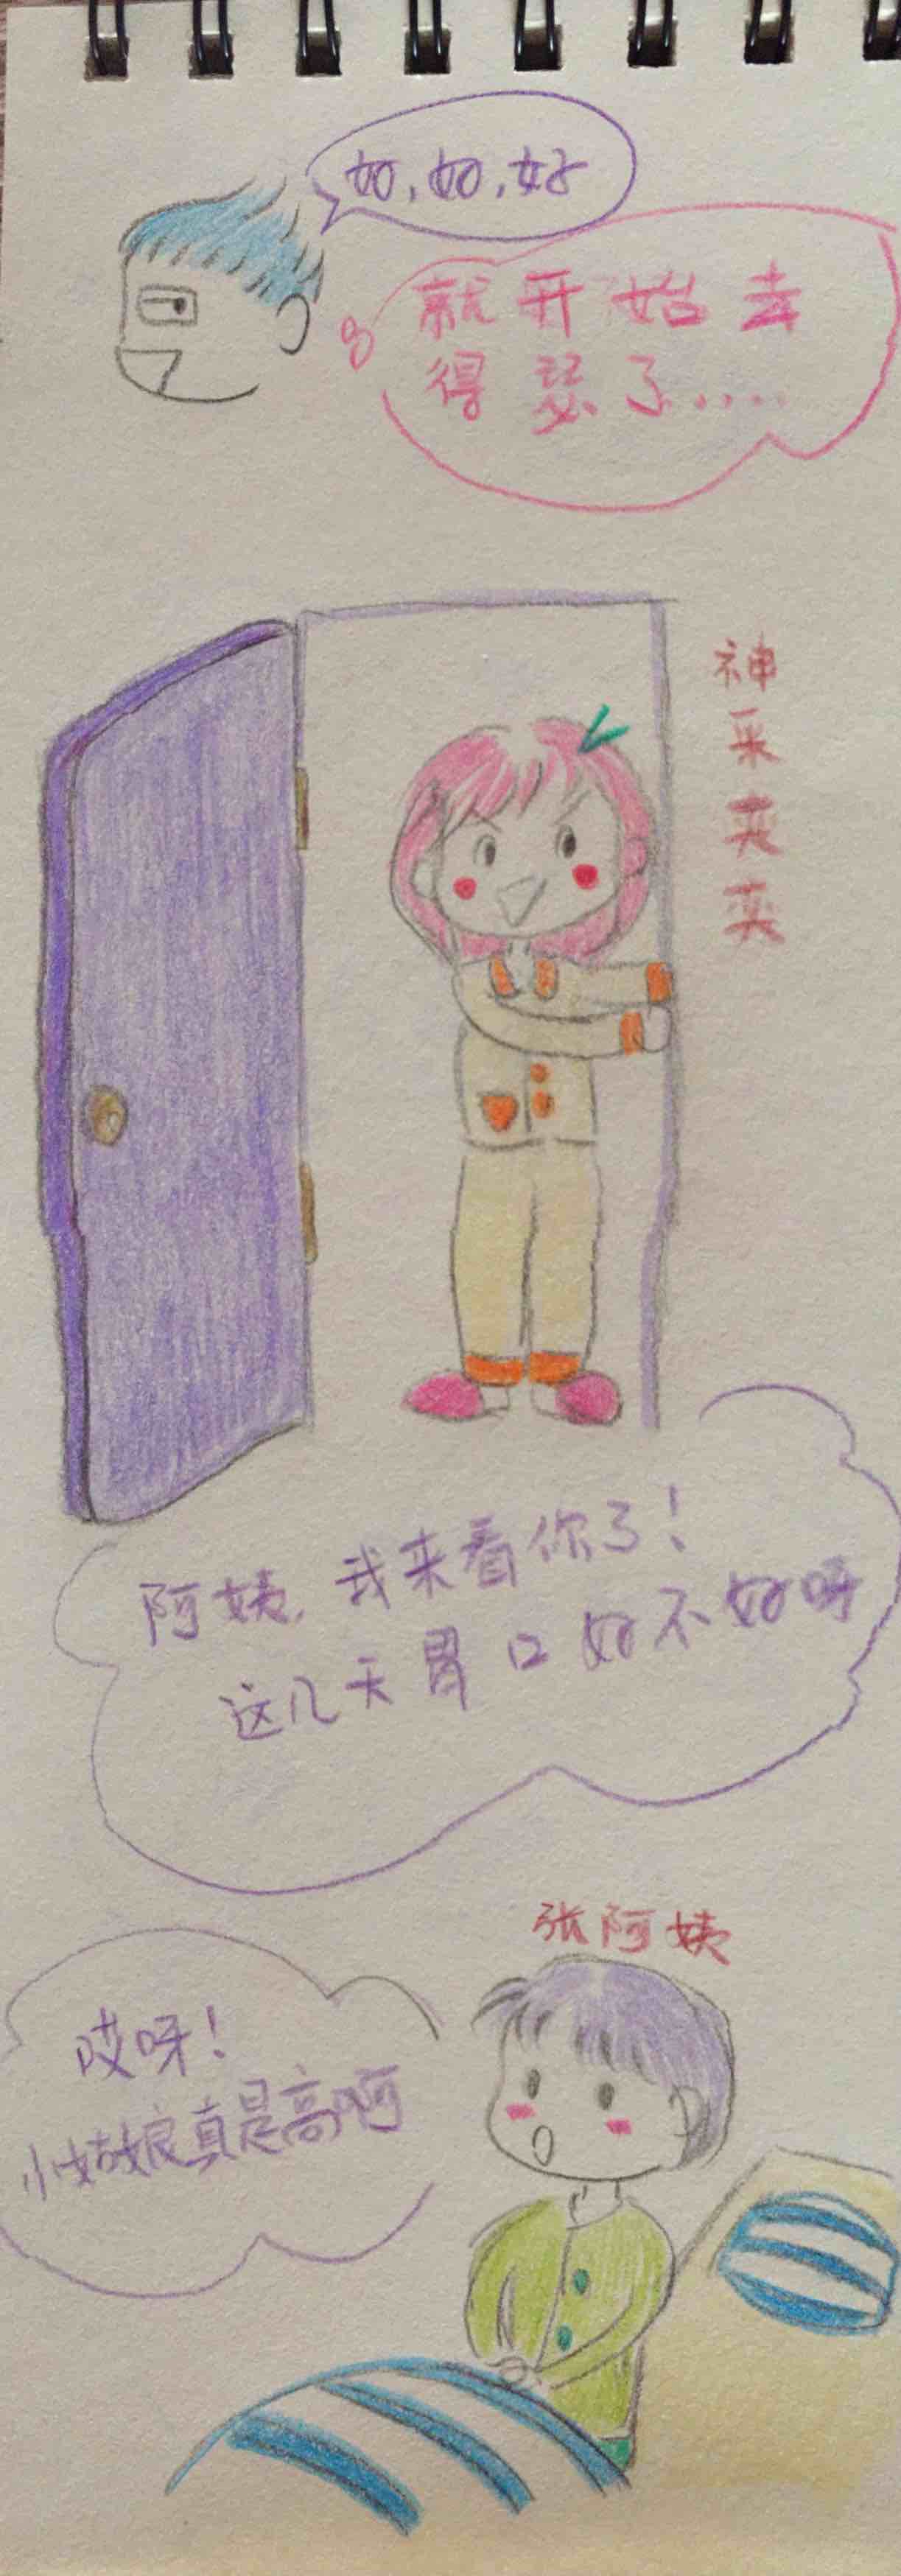 好,好,好
就开始去
得瑟了.....
神采奕奕
阿姨,我来看你了!
这几天胃口好不好呀
张阿姨
哎呀!
小姑娘真是高啊